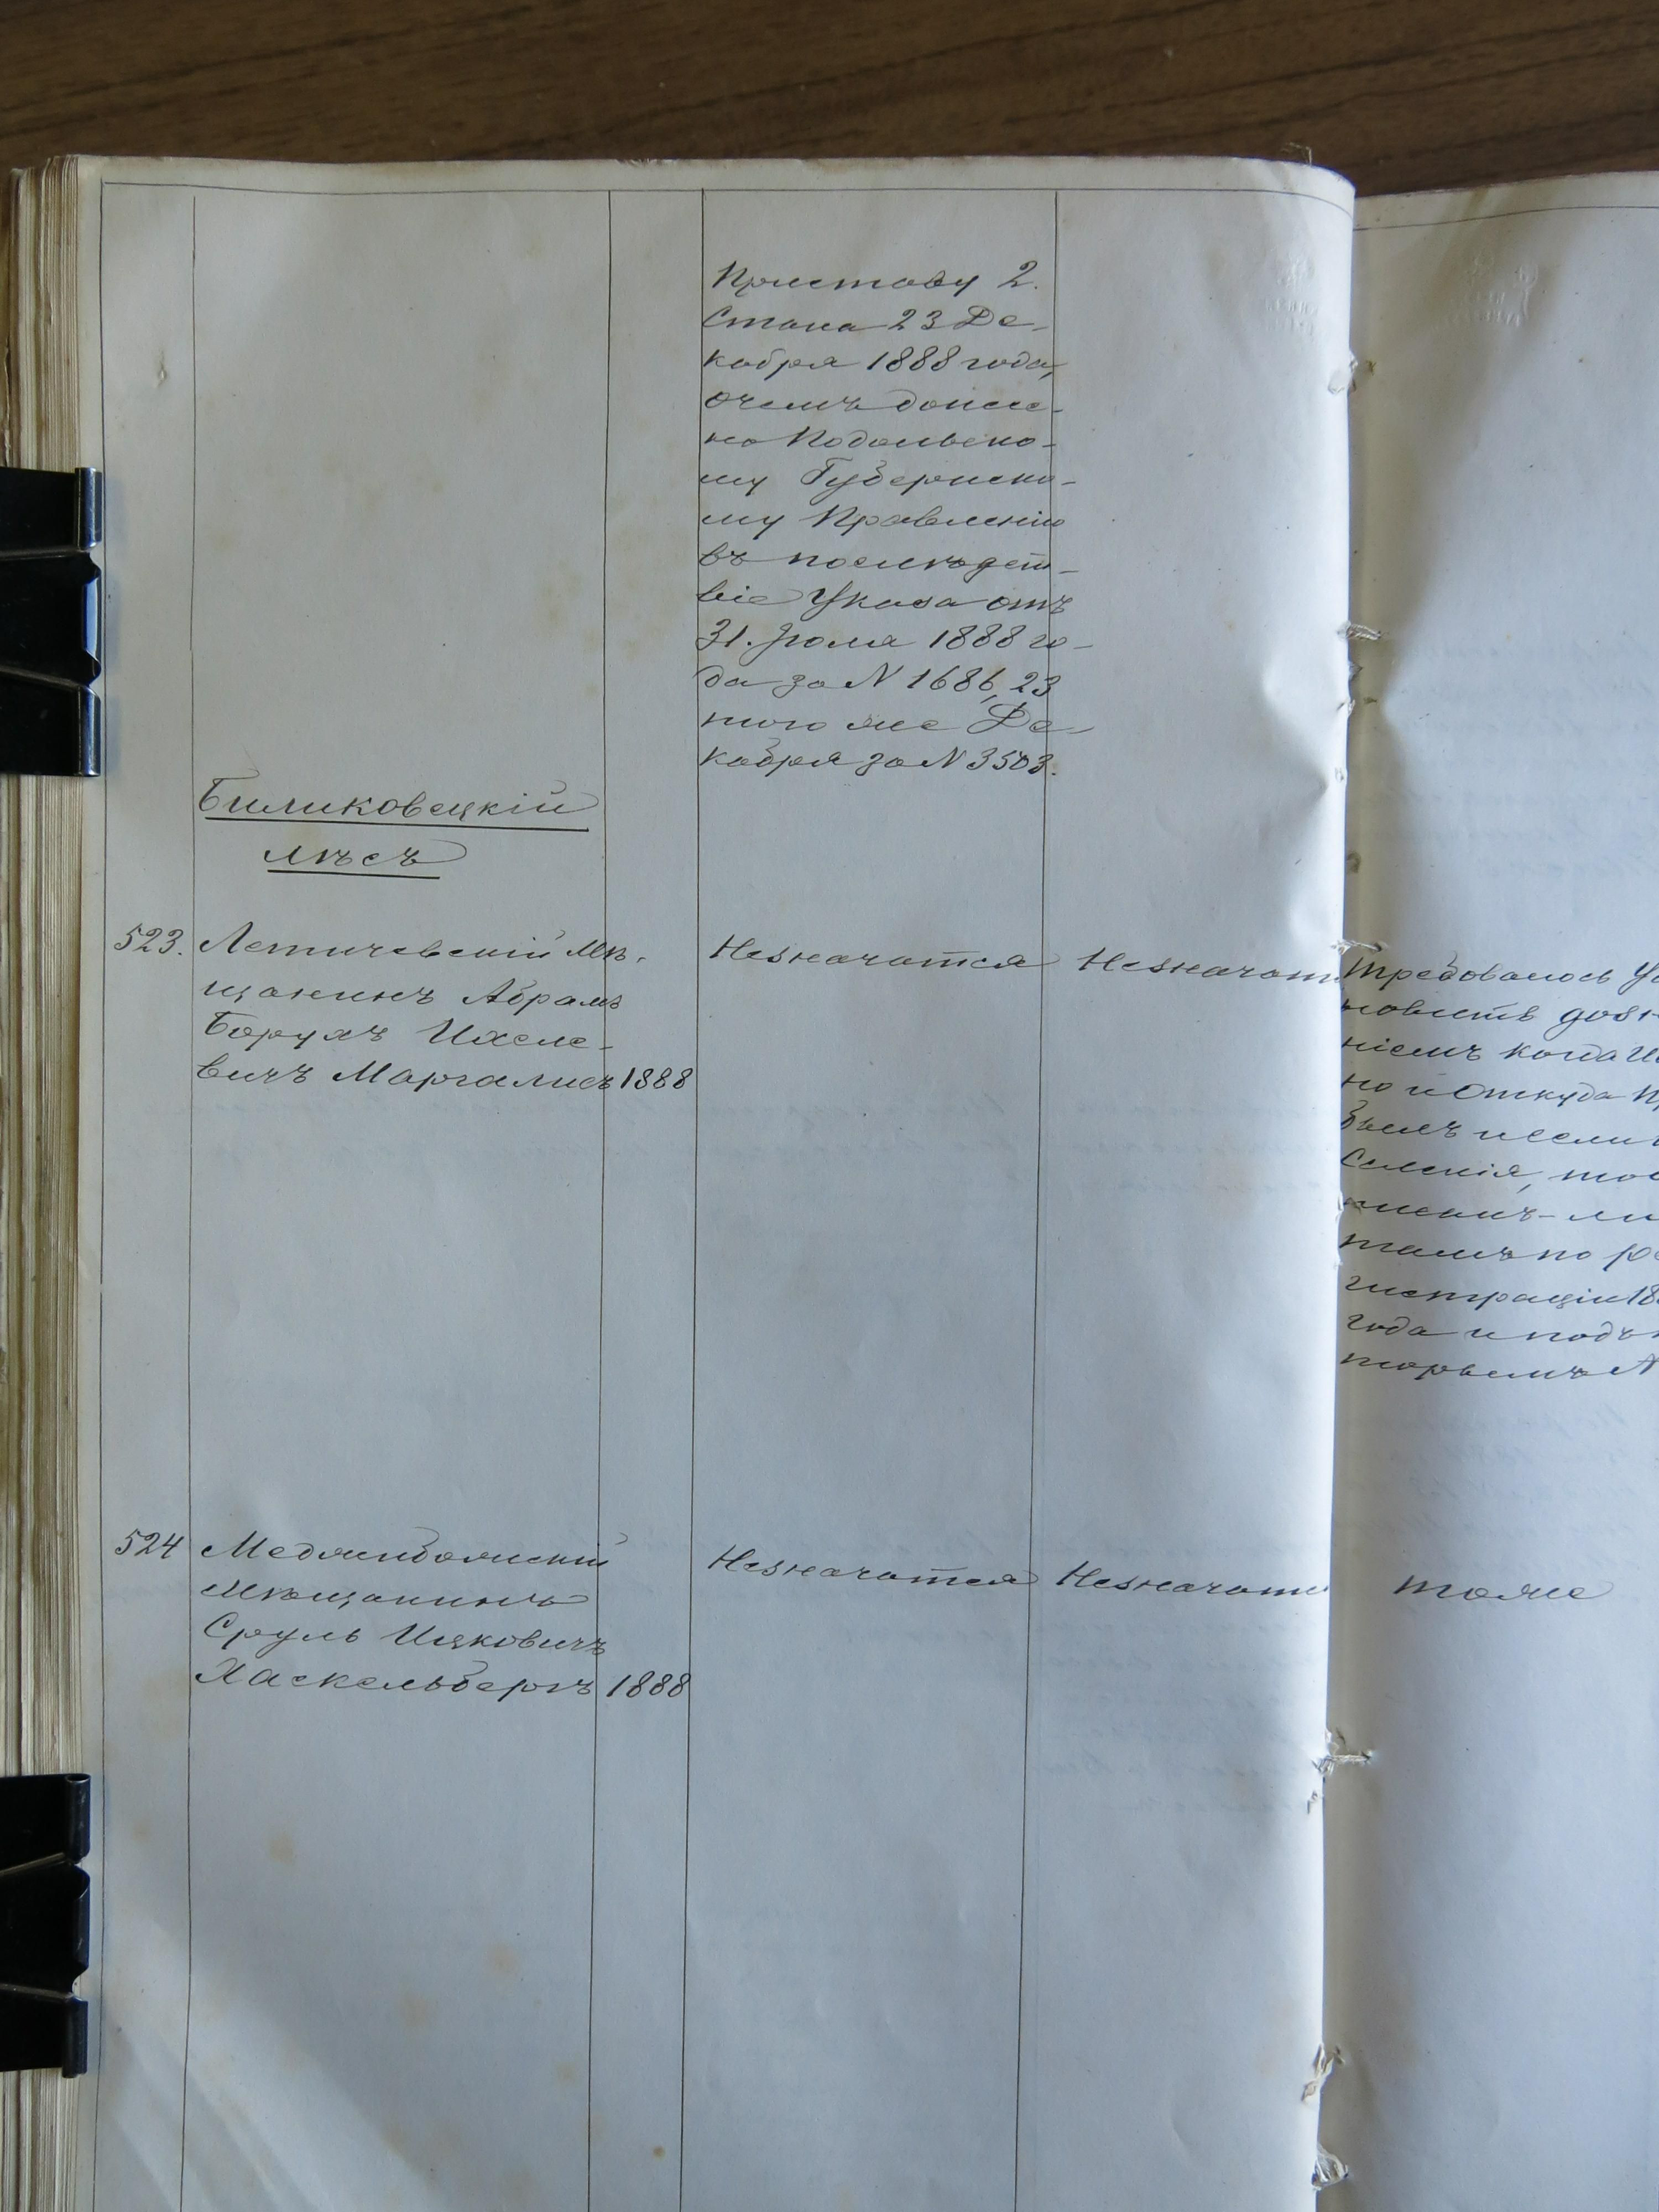 Приставу 2.
Стана 23 Де-
кабря 1888 года,
очемъ донесе-
но Подольско-
му Губернско-
му Правленію
въ послѣдст-
віе Указа отъ
31. Іюля 1888 го-
да за N 1686, 23
того же Де-
кабря за N 3503.
Биликовецкій
лѣсъ
523. Летичевскій Мѣ-
щанинъ Абрамъ
Борухъ Ихеле-
вичъ Маргалисъ 1888
Незначатся
Незначат
Требовалось Ус
новить дозн
ніемъ когда И
но и Откуда П
былъ и если
Селенія, то
там по ре
гистраціи 18
года и подъ
торымъ N
524 Меджибожскій
Мѣщанинъ
Сруль Ицковичъ
Хаскельбергъ 1888
Незначатся
Незначат
тоже